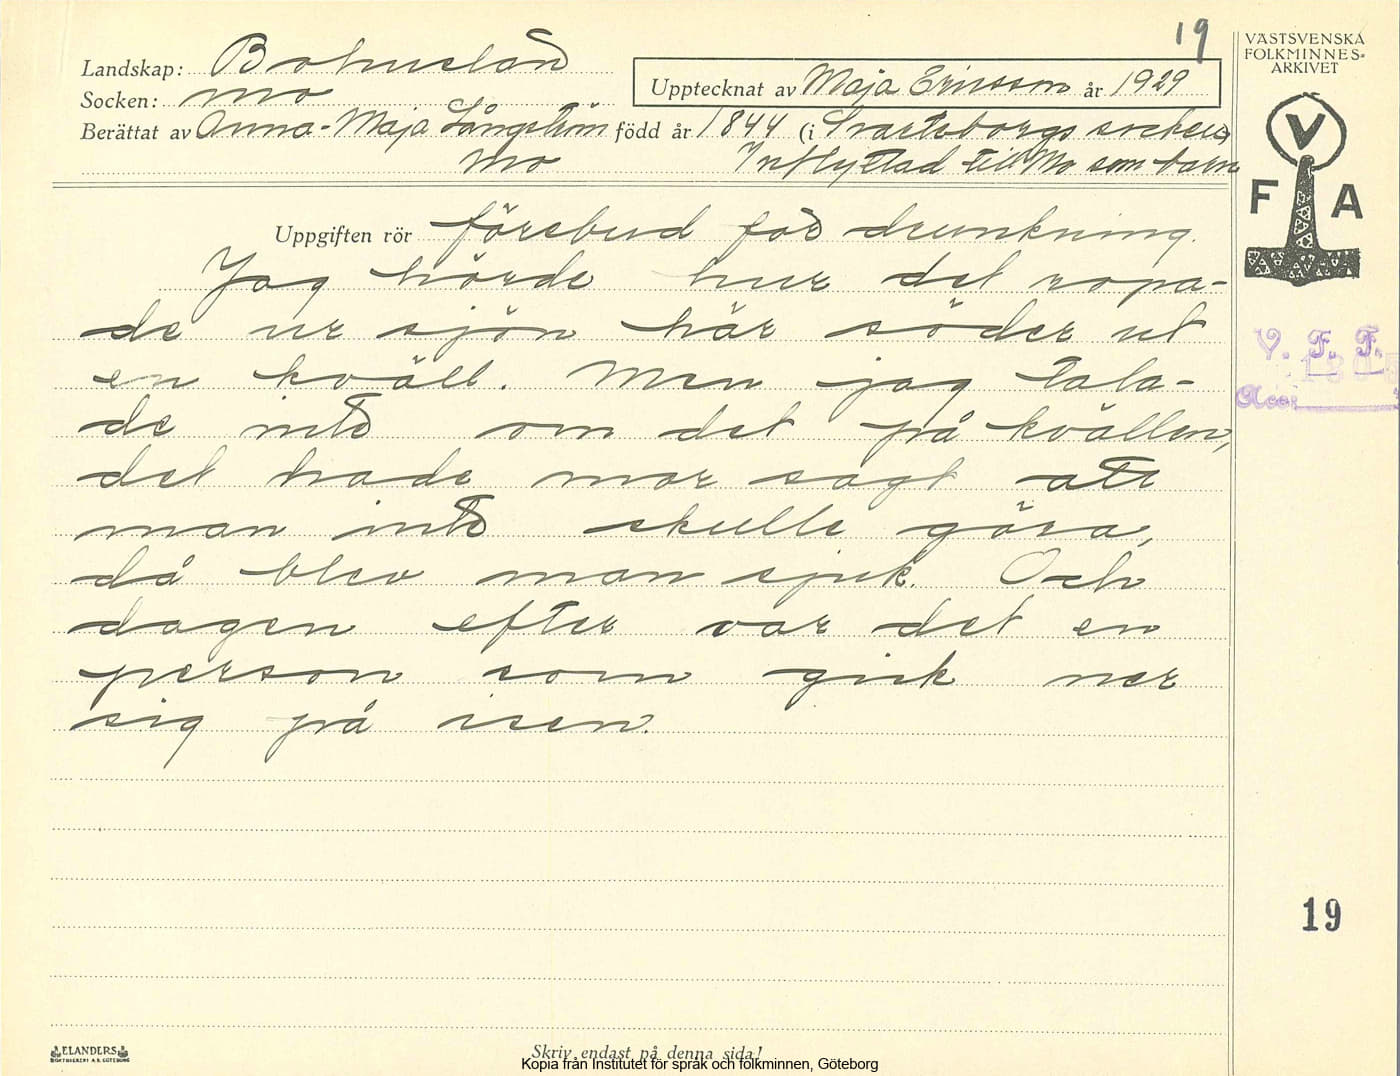 19
VÄSTSVENSKA
FOLKMINNES-
ARKIVET
Landskap: Bohuslän
Socken: Mo
Upptecknat av Maja Ericsson år 1929
Berättat av Anna-Maja Långström född år 1844 (i Svarteborgs socken)
Mo Inflyttad till Mo som barn
V
F A
Uppgiften rör försbud för drunkning.
Jag hörde hur det ropa-
de ur sjön här söder ut
en kväll. Men jag tala-
de inte om det på kvällen,
det hade mor sagt att
man inte skulle göra,
då blev man sjuk. Och
dagen efter var det en
person som gick ner
sig på isen.
V. F. F.
Acc:
19
ELANDERS
BOKTRYCKERI A.B. GÖTEBORG
Skriv endast på denna sida!
Kopia från Institutet för språk och folkminnen, Göteborg